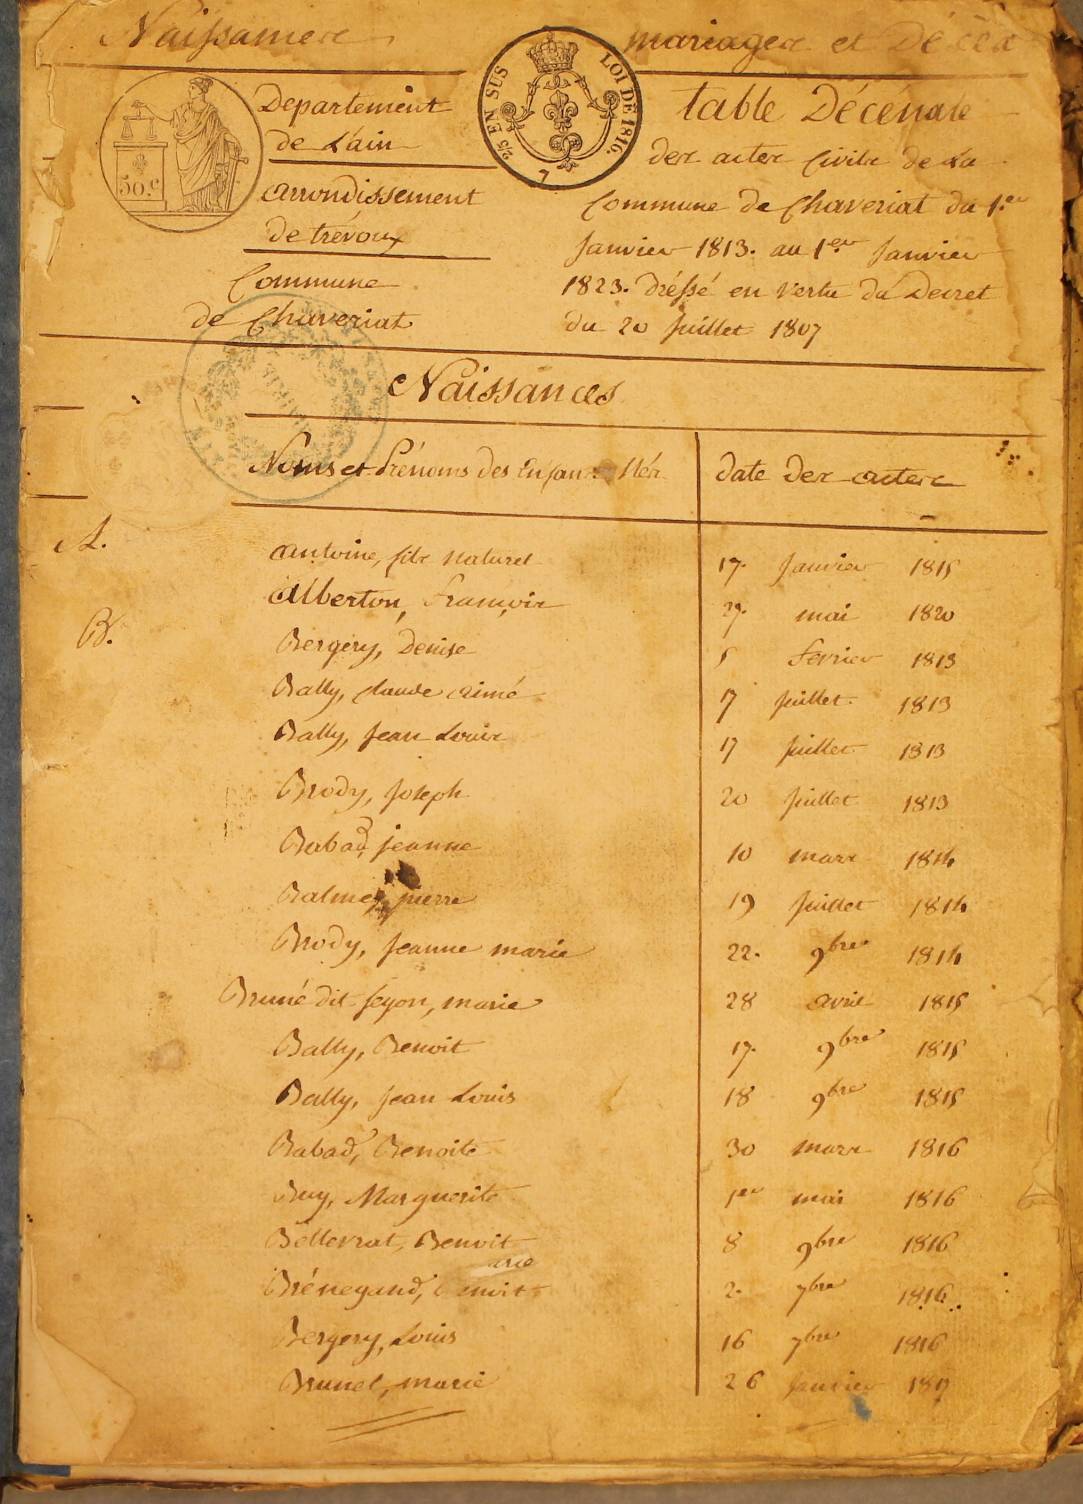 Naissances mariages et Décès
2/5 EN SUS LOI DE 1816.
7
50.c
Departement
de L'ain
arrondissement
de trévoux
Commune
de Chaveriat
table Décénale
des actes Civils de La
Commune de Chaveriat du 1.er
Janvier 1813. au 1er Janvier
1823. dréssé en vertu du Decret
du 20 Juillet 1807
Naissances
Noms et Prénoms des Enfans Nés date des actes
A. antoine, fils naturel 17. Janvier 1815
alberton, François 27. mai 1820
B. Bergery, Denise 5 fevrier 1813
Bally, claude aimé 17 Juillet 1813
Bally, Jean Louis 17 Juillet 1813
Brody, Joseph 20 Juillet 1813
Babad, jeanne 10 mars 1814
Balme, pierre 19 Juillet 1814
Brody, Jeanne marie 22. 9bre 1814
Bruné dit feyon, marie 28 avril 1815
Bally, Benoit 17. 9bre 1815
Bally, jean Louis 18 9bre 1815
Babad, Benoite 30 mars 1816
Buy, Marguerite 1er mai 1816
Bellevrat, Benoit 8 9bre 1816
Brénegand, 2. 7bre 1816
Bergery, Louis 16 7bre 1816
Brunet, marie 26 Janvier 1817